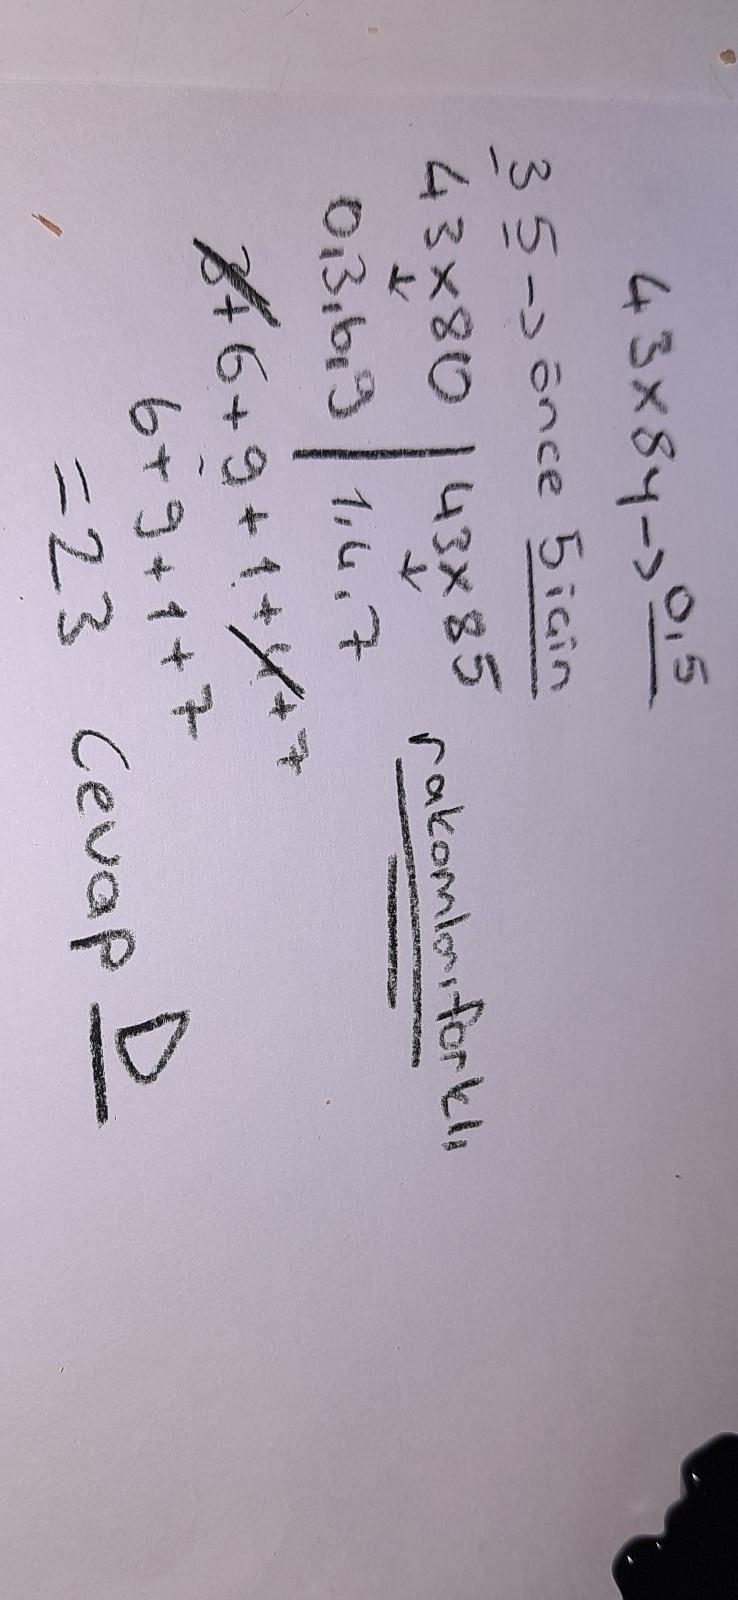 43x84->0,5
3 5 -> önce 5 için
43x80 | 43x85 rakamları farklı
0,3,6,9 | 1,4,7
3+6+9+1+4+7
6+9+1+7
=23 Cevap D